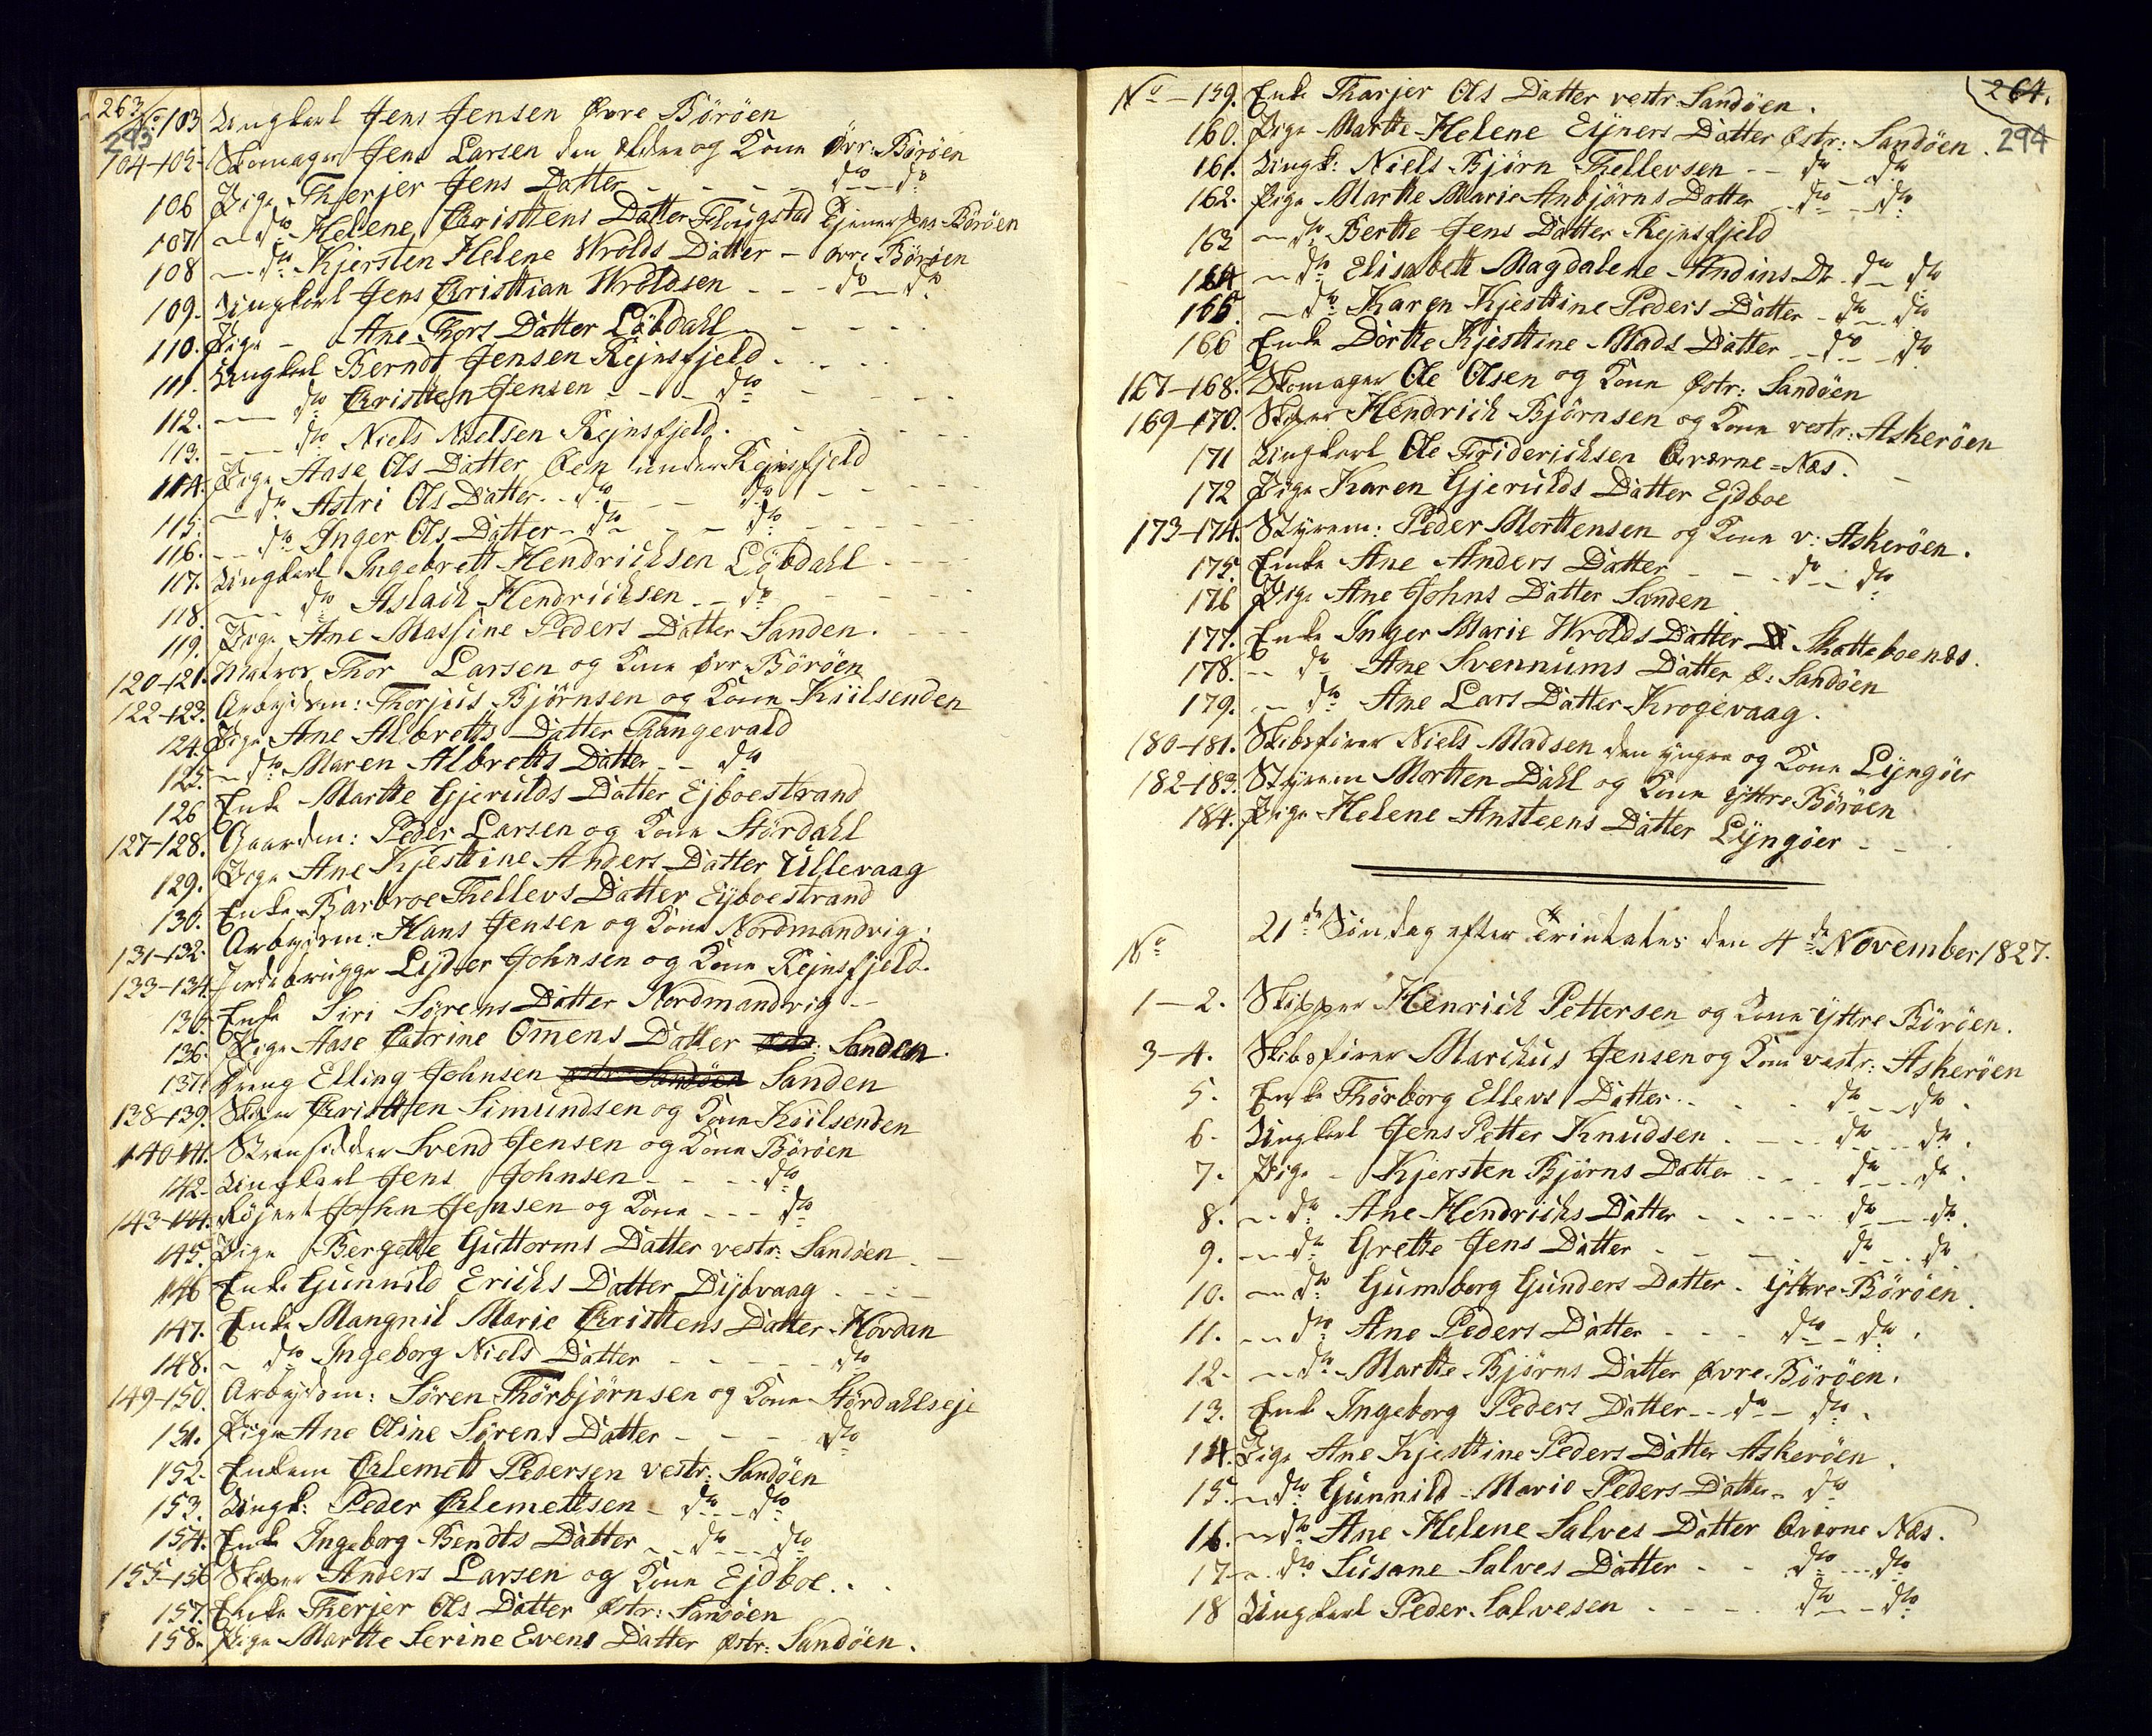 263
293
No 103 Ungkarl Jens Jensen Øvre Böröen
104-105 Skomager Jens Larsen den ældre og Kone Øvr: Böröen
106 Pige Therjer Jens Datter - - - - do - do
107 - do Helene Christtens Datter Flougstad Børöen
108 - do Kjersten Helene Wrolds Datter - Øvre Böröen
109. Ungkarl Jens Christtian Wroldsen - - - do - do
110. Pige - Ane Thors Datter Löbdahl
111. Ungkarl Berndt Jensen Rejnsfjeld
112. - do Christten Jensen - - - do
113. - do Niels Nielsen Rejnsfjeld.
114. Pige Aase Ols Datter Øen under Rejnsfjeld
115. - do Astri Ols Datter - do - - do
116. - do Inger Ols Datter - do - - do
117. Ungkarl Ingebrett Hendrichsen Löbdahl
118. - do Aslach Hendrichsen - - do
119. Pige Ane Massine Peders Datter Sanden.
120-121. Matros Thor Larsen og Kone Øvr Böröen
122-123. Arbejdsm: Thorjus Bjørnsen og Kone Kiilsenden
124. Pige Ane Albretts Datter Thangevald
125. - do Maren Albretts Datter - - do
126 Enke Martte Gjerulds Datter Ejboestrand
127-128. Gaardm: Peder Larsen og Kone Stördahl
129. Pige Ane Kjesttine Anders Datter Ullevaag
130. Enke Barbroe Thellevs Datter Eijboestrand
131-132. Arbejdsm: Hans Jensen og Kone Nordmandvig.
133-134. Jordebrugger Lijder Johnsen og Kone Rejnsfjeld.
135. Enke Siri Sörens Datter Nordmandvig -
136. Pige Aase Catrine Omens Datter Sanden.
137. Dreng Elling Johnsen østr Sandöen Sanden
138-139. Skiper Christten Simundsen og Kone Kiilsenden
140-141. Stransidder Svend Jensen og Kone Böröen
142. Ungkarl Jens Johnsen - - - - do
143-144. Föjert John Jensen og Kone - - - do
145. Pige Bergette Guttorms Datter vestr: Sandöen
146 Enke Gunnild Erichs Datter Dijbvaag
147. Enke Mangnil Marie Christtens Datter Hovdan
148. - do Ingeborg Niels Datter - - - - - do
149-150. Arbejdsm: Sören Thörbjörnsen og Kone Stördahlseje
151. Pige Ane Oline Sörens Datter - - - do
152. Enkem Clemett Pedersen vestr: Sandöen
153. Ungk: Peder Clemettsen - do - do
154. Enke Ingeborg Bendts Datter - do - - do
155-156 Skiper Anders Larsen og Kone Ejdboe.
157. Enke Therjer Ols Datter østr: Sandöen
158. Pige Martte Serine Evens Datter østr: Sandöen.
264.
294
No - 159. Enke Tharjer Ols Datter vestr Sandöen.
160. Pige Martte Helene Eijners Datter østr: Sandöen.
161. Ungk: Niels Bjørn Thellevsen - - do - do
162. Pige Martte Marie Anbjørns Datter - do - - do
163 - do Bertte Jens Datter Rejnsfjeld
164 - do Elisabett Magdalene Andins Dtr. do - do
165. - do Karen Kjesttine Peders Datter - do - do
166 Enke Dortte Kjesttine Mads Datter - - do - - do
167-168. Skomager Ole Olsen og Kone Østr: Sandöen
169-170. Skiper Hendrich Bjørnsen og Kone vestr: Askeröen
171 Ungkarl Ole Friderichsen Qværne=Næs.
172 Pige Karen Gjerulds Datter Ejdboe
173-174. Styrem: Peder Morttensen og Kone v: Askeröen.
175. Enke Ane Anders Datter - - do - - do
176 Pige Ane Johns Datter Sanden
177. Enke Inger Marie Wrolds Datter Skatteboenæs.
178. - - do Ane Svennums Datter Ø: Sandöen
179. - - do Ane Lars Datter Krogevaag.
180-181. Skibsfirer Niels Madsen den yngre og Kone Lijngöer
182-183. Styrem Mortten Dahl og Kone Ijttre Böröen
184. Pige Helene Ansteens Datter Lijngöer - -
No 21de Söndag efter Trinitates den 4de November 1827.
1-2. Skipper Henrich Pettersen og Kone Ijttre Böröen.
3-4. Skibsfirer Marchus Jensen og Kone vestr: Askeröen
5. Enke Thörborg Ellevs Datter. . . . do - - do.
6. Ungkarl Jens Petter Knudsen. - - - do - - do.
7. Pige - Kjersten Bjørns Datter - - - do - - do.
8. - - do Ane Hendrichs Datter - - - - - do - do.
9. - - do Grette Jens Datter - - - - do - - do.
10. - - do Gumborg Gunders Datter. Ijttre Böröen.
11. - - do Ane Peders Datter - - - do - do.
12. - - do Martte Bjørns Datter Øvre Böröen.
13. Enke Ingeborg Peders Datter - - do - do.
14. Pige Ane Kjesttine Peders Datter Askeröen.
15. - do Gunnild Marie Peders Datter - do
16. - do Ane Helene Salves Datter Qværne Næs.
17 - do Susane Salves Datter - - do - - do
18 Ungkarl Peder Salvesen - - - - do - - do